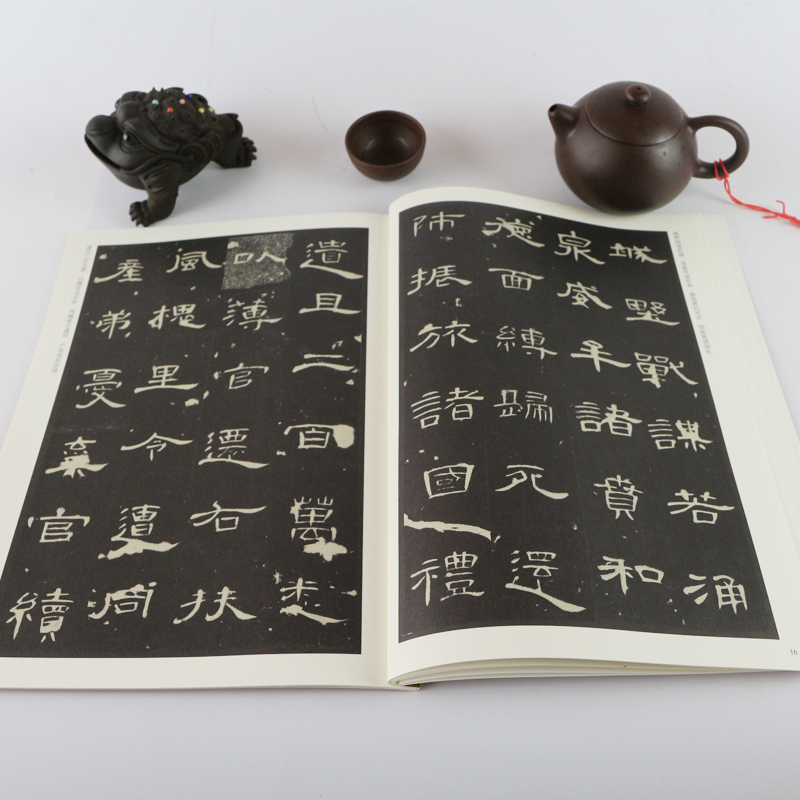 城墅戰謀若涌
泉威牟諸賁和
德面縛歸死還
師振旅諸國禮
遺且二百萬悉
以薄官遷右扶
風槐里令遭同
產弟憂棄官續
16